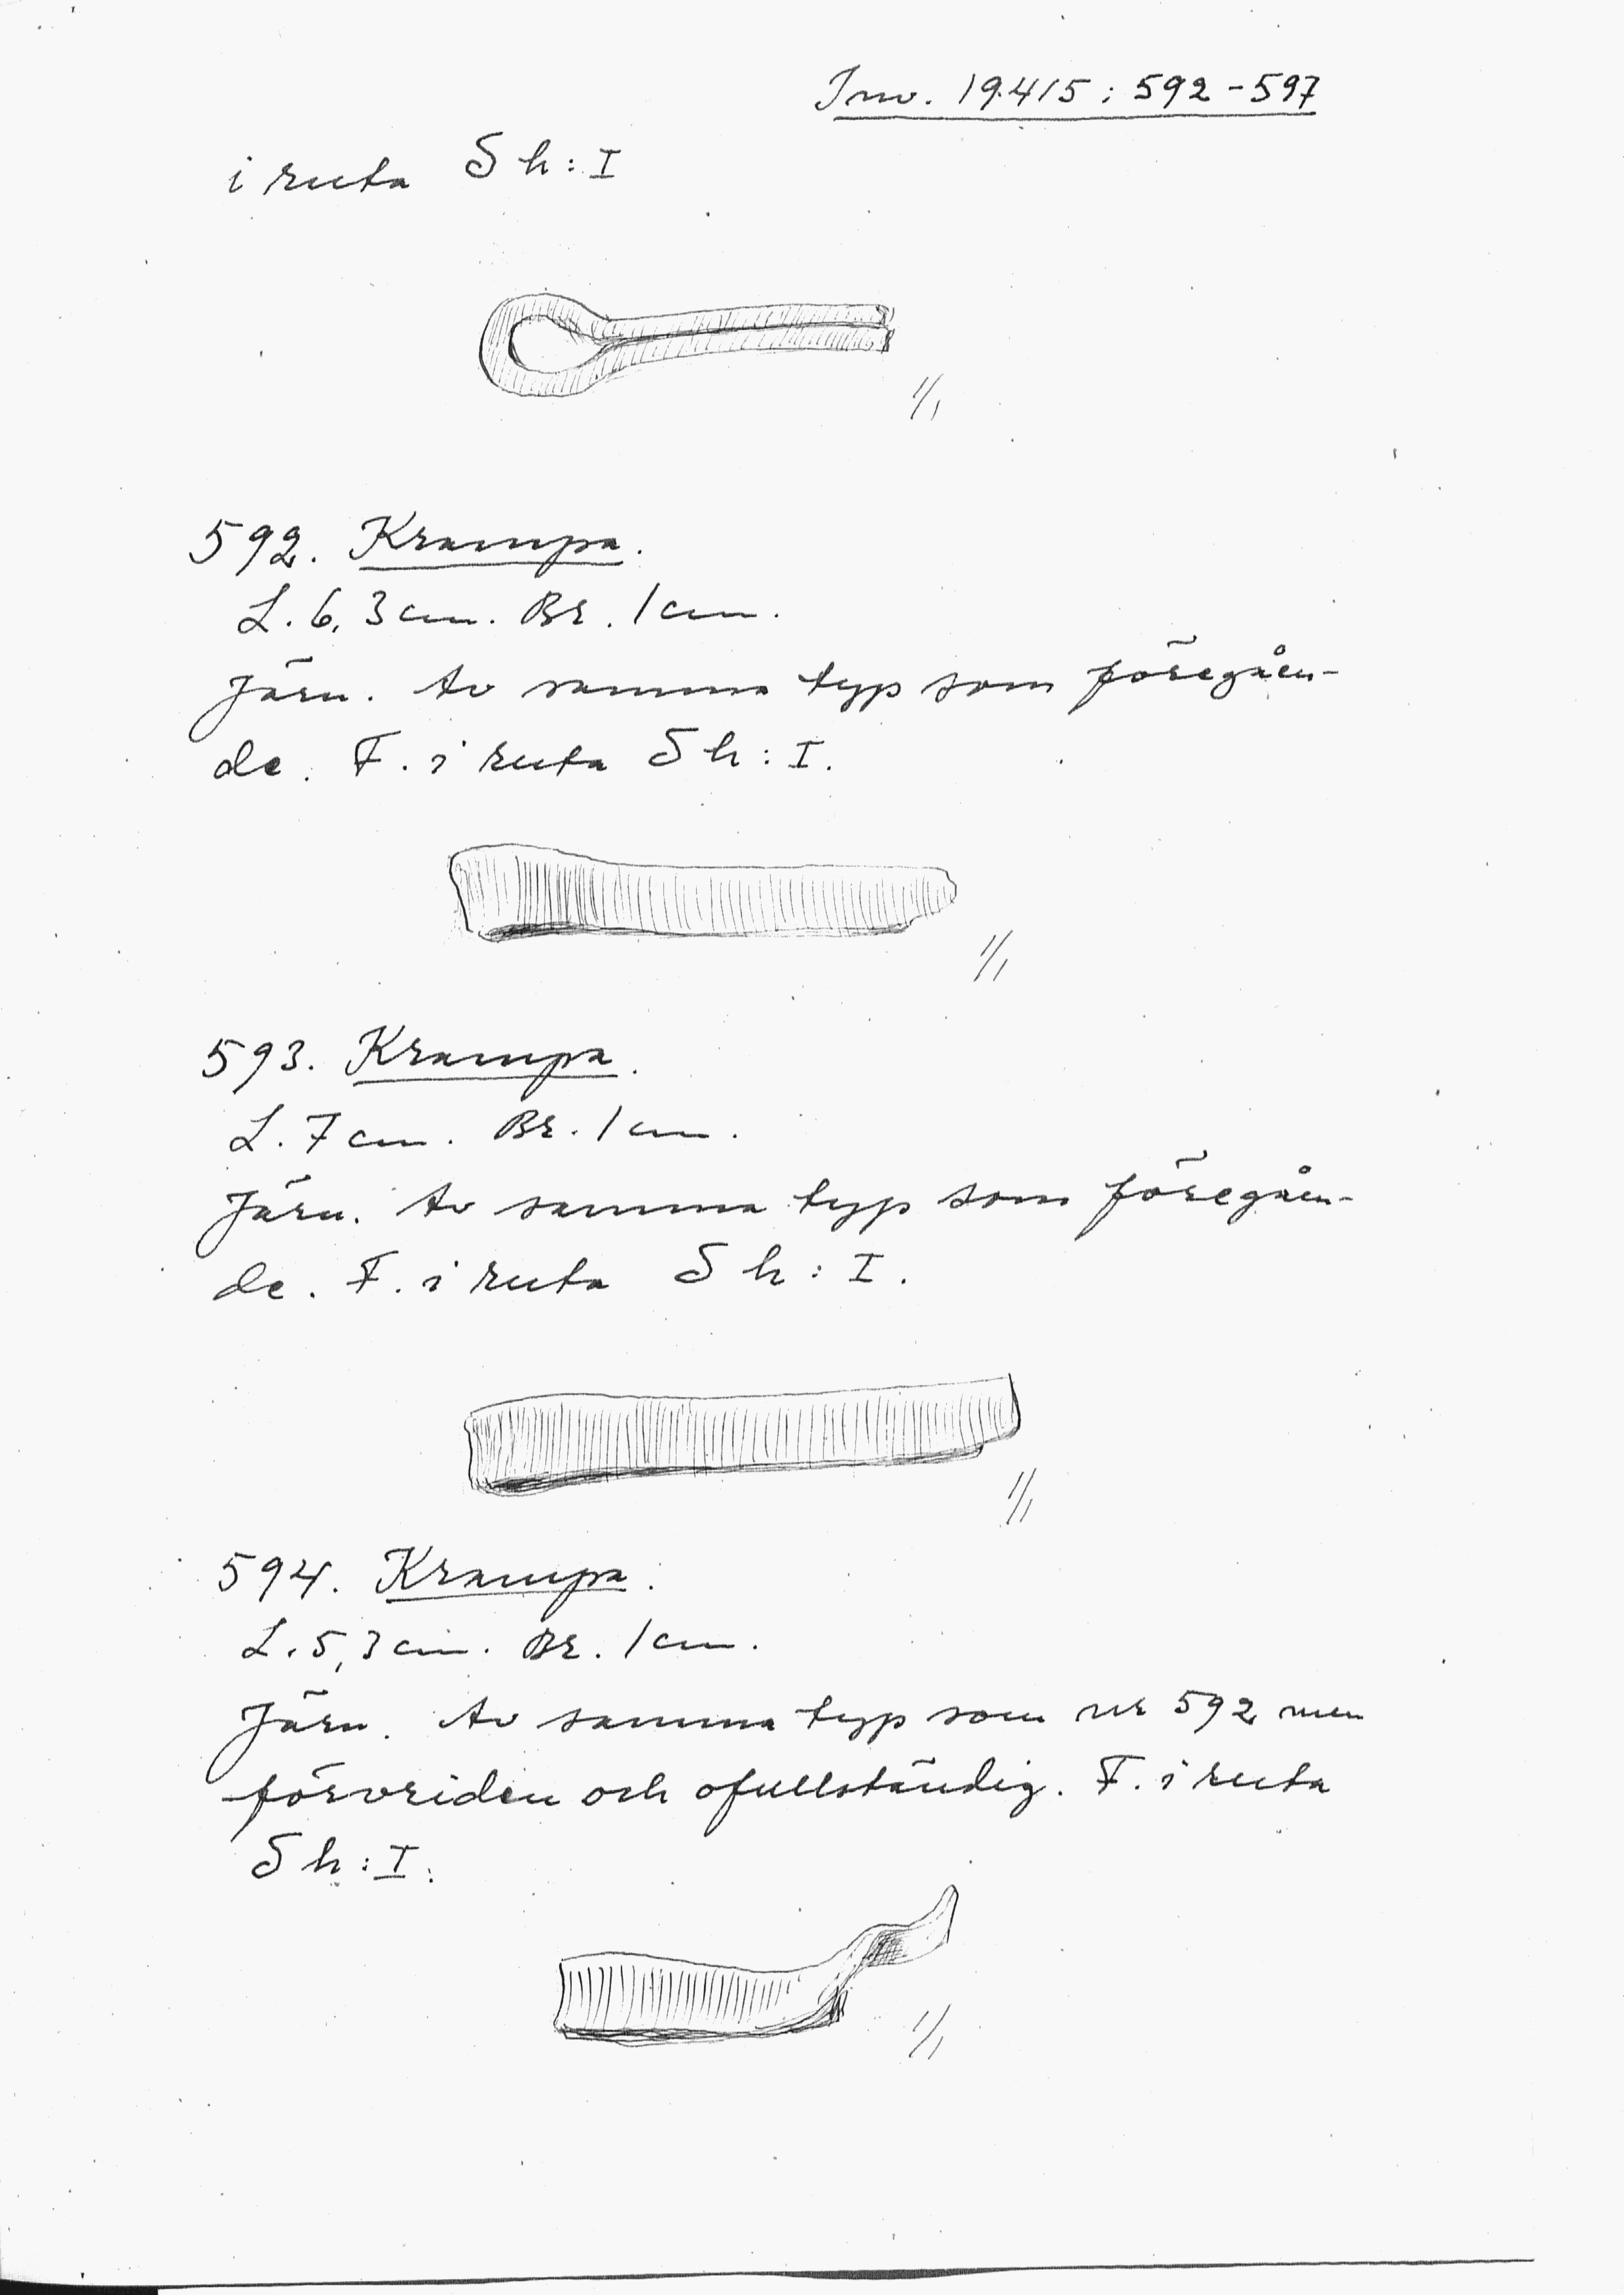 Inv. 19.415 : 592-597
i ruta Sh: I
1/1
592. Krampa.
L. 6,3 cm. Br. 1 cm.
Järn. Av samma typ som föregåen-
de. F. i ruta Sh: I.
1/1
593. Krampa.
L. 7 cm. Br. 1 cm.
Järn. Av samma typ som föregåen-
de. F. i ruta Sh: I.
1/1
594. Krampa.
L. 5,3 cm. Br. 1 cm.
Järn. Av samma typ som nr 592 men
förvriden och ofullständig. F. i ruta
Sh: I.
1/1